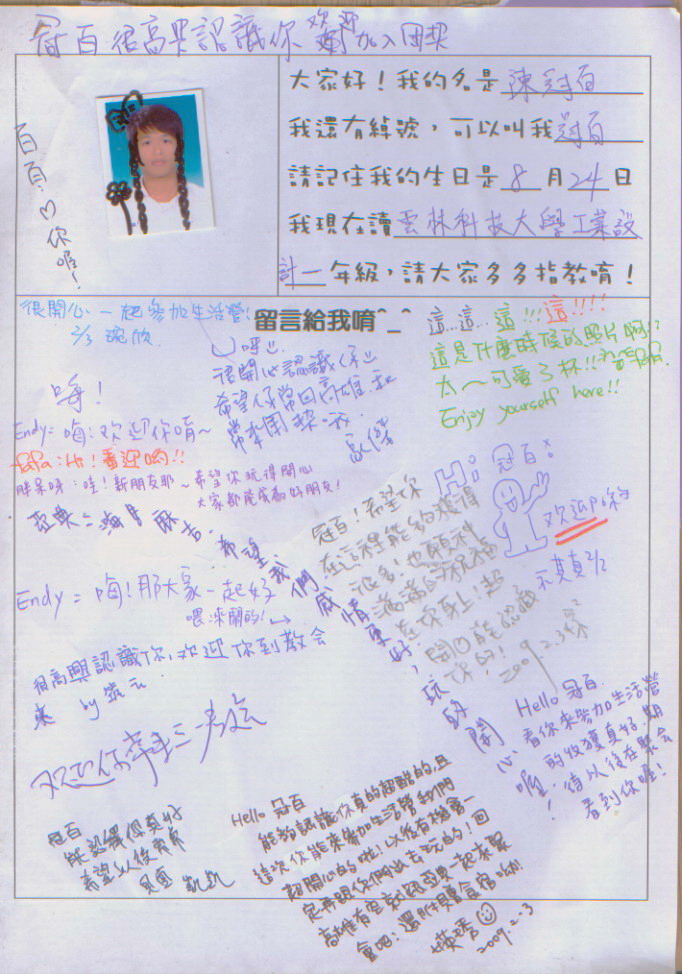 冠百很高興認識你 歡迎加入團契
百百♡你喔！
大家好！我的名是 陳冠百
我還有綽號，可以叫我 冠百
請記住我的生日是 8 月 24 日
我現在讀 雲林科技大學工業設
計一 年級，請大家多多指教唷！
很開心一起參加生活營！
2/3 琬欣
留言給我唷^_^
這...這...這!!!這!!!!
這是什麼時候的照片啊!?
太~可愛了
Enjoy yourself here!!
很開心認識你
希望你常回高雄
常來團契
嗨！
Endy=嗨!歡迎你唷~
Hi!番迎喲!!
哇!新朋友耶~希望你玩得開心
大家都能成為好朋友!
希望我們感情更好，玩的開心
Endy=嗨!那大家一起好
喂!來鬧的!
Hi 冠百!
歡迎你的
2/2
冠百!希望你
在這裡能夠獲得
很多!也願神
滿滿的祝福
在你身上!超
開心能認識
你的!
2009.2.3
很高興認識你，歡迎你到教會
來 by 筑云
Hello 冠百
看你來參加生活營
的收穫真好，期
待以後在聚會
看到你喔！
冠百
能認識你真好
希望以後常常
見面 凱凱
Hello 冠百
能夠認識你真的超酷的，且
這次你能來參加生活營我們
超開心的啦!以後有機會一
定再跟你們出去玩的!回
高雄有空就跟亞典一起來聚
會吧!還附贈食宿呦!
2009.2.3